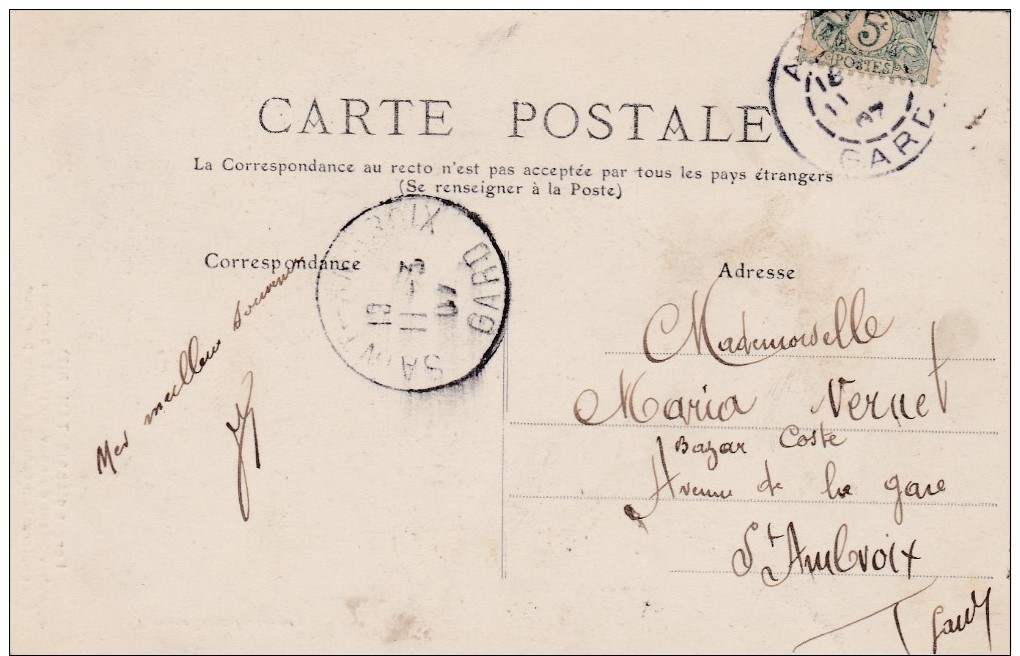 5c
POSTES
18
11
07
GARD
CARTE POSTALE
La Correspondance au recto n'est pas acceptée par tous les pays étrangers
(Se renseigner à la Poste)
SAINT-AMBROIX
18 -5
11
07
GARD
Correspondance
Mes meilleurs souvenirs
Adresse
Mademoiselle
Maria Vernet
Bazar Coste
Avenue de la gare
St Ambroix
Gard